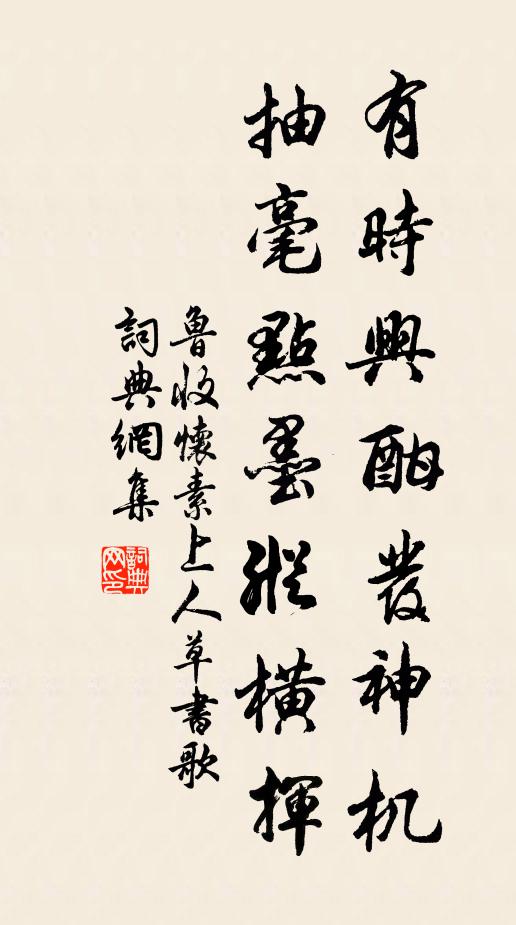 有時興酣發神机
抽毫點墨縱橫揮
魯收懷素上人草書歌
詞典網集
詞典网印